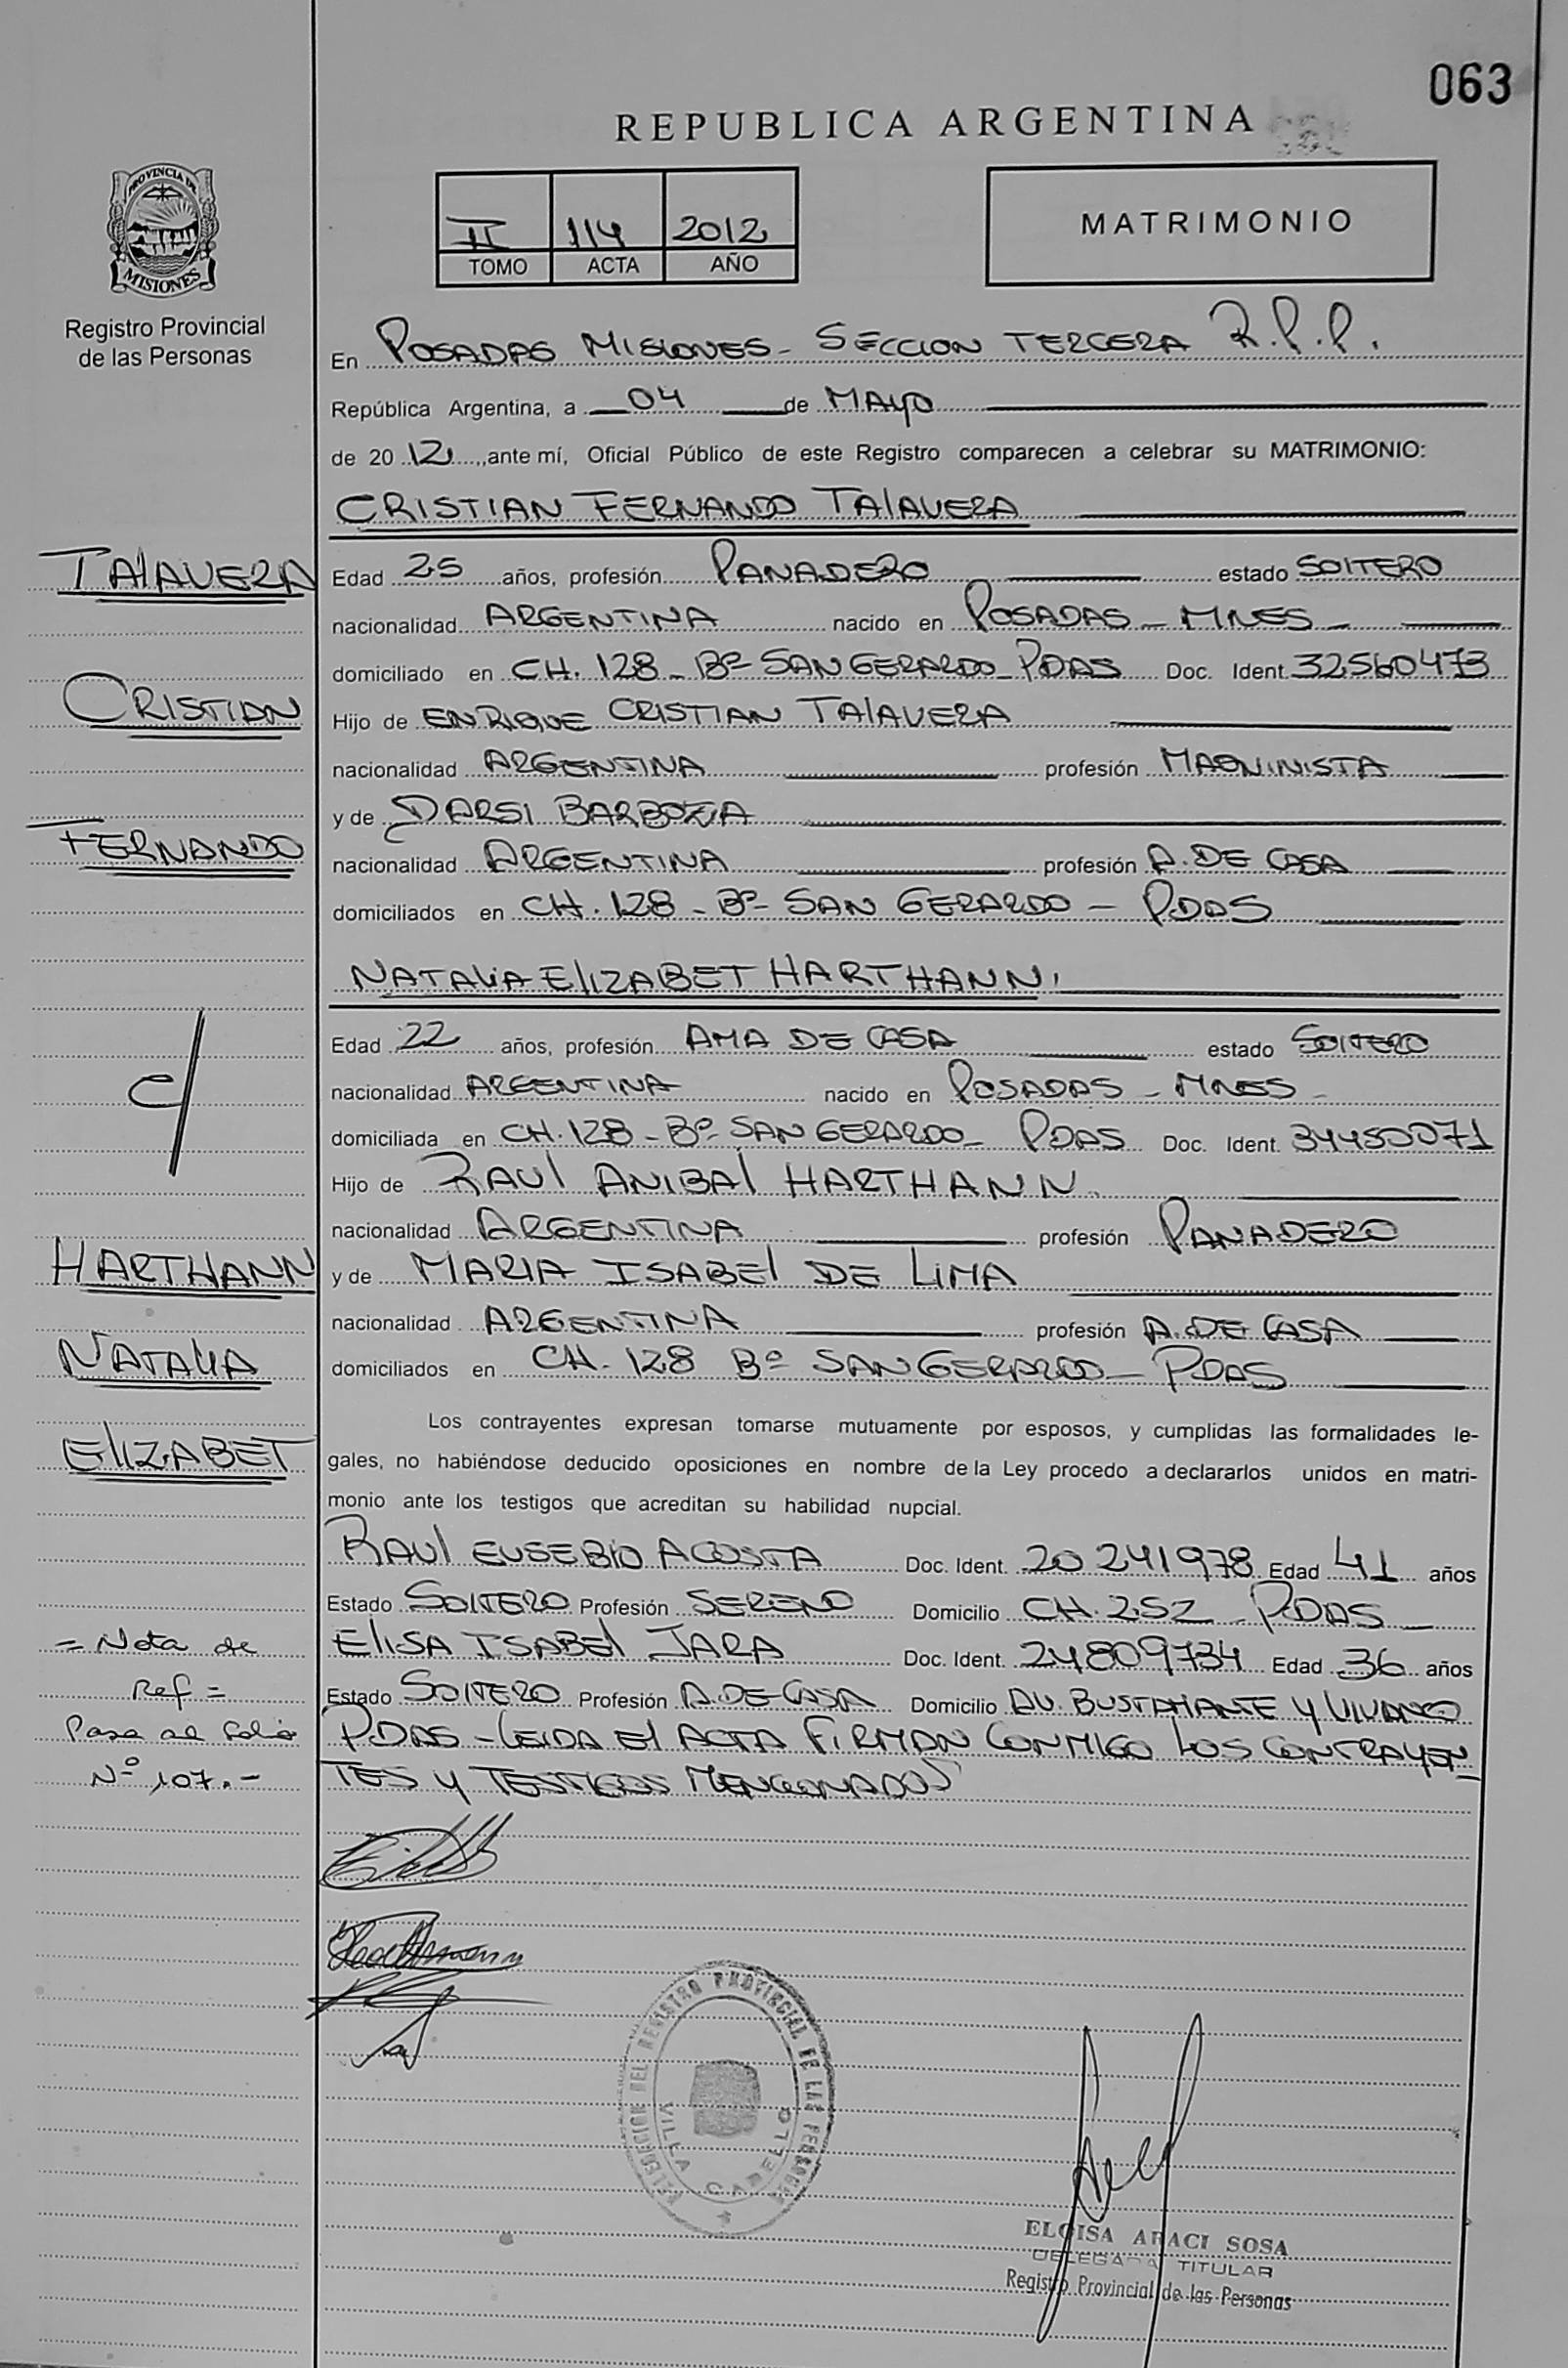 063
REPUBLICA ARGENTINA
PROVINCIA DE
MISIONES
Registro Provincial
de las Personas
II 114 2012
TOMO ACTA AÑO
MATRIMONIO
En POSADAS MISIONES - SECCION TERCERA R.P.P.
República Argentina, a 04 de MAYO
de 2012, ante mí, Oficial Público de este Registro comparecen a celebrar su MATRIMONIO:
CRISTIAN FERNANDO TALAVERA
TALAVERA
CRISTIAN
FERNANDO
c/
HARTHANN
NATALIA
ELIZABET
Edad 25 años, profesión PANADERO estado SOLTERO
nacionalidad ARGENTINA nacido en POSADAS - MNES -
domiciliado en CH. 128 - Bº SAN GERARDO - PDAS Doc. Ident. 32560473
Hijo de ENRIQUE CRISTIAN TALAVERA
nacionalidad ARGENTINA profesión MAQUINISTA
y de DARSI BARBOZA
nacionalidad ARGENTINA profesión A. DE CASA
domiciliados en CH. 128 - Bº SAN GERARDO - PDAS
NATALIA ELIZABET HARTHANN.
Edad 22 años, profesión AMA DE CASA estado SOLTERO
nacionalidad ARGENTINA nacido en POSADAS - MNES -
domiciliada en CH. 128 - Bº SAN GERARDO - PDAS Doc. Ident. 34450071
Hijo de RAUL ANIBAL HARTHANN.
nacionalidad ARGENTINA profesión PANADERO
y de MARIA ISABEL DE LIMA
nacionalidad ARGENTINA profesión A. DE CASA
domiciliados en CH. 128 Bº SAN GERARDO - PDAS
Los contrayentes expresan tomarse mutuamente por esposos, y cumplidas las formalidades le-
gales, no habiéndose deducido oposiciones en nombre de la Ley procedo a declararlos unidos en matri-
monio ante los testigos que acreditan su habilidad nupcial.
RAUL EUSEBIO ACOSTA Doc. Ident. 20241978 Edad 41 años
Estado SOLTERO Profesión SERENO Domicilio CH. 252 - PDAS
ELISA ISABEL JARA Doc. Ident. 24809734 Edad 36 años
Estado SOLTERO Profesión A. DE CASA Domicilio AV. BUSTAMANTE Y
PDAS - LEIDA EL ACTA FIRMAN CONMIGO LOS CONTRAYEN
TES Y TESTIGOS MENCIONADOS
= Nota de
Ref =
Pasa al folio
Nº 107.-
DELEGACION DEL REGISTRO PROVINCIAL DE LAS PERSONAS
VILLA CABELLO
ELOISA ARACI SOSA
DELEGADA TITULAR
Registro Provincial de las Personas